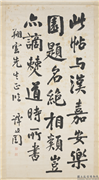 此帖与漢嘉安樂
園題名絕相類豈
亦謫
道時所書
翔雲先生正臨